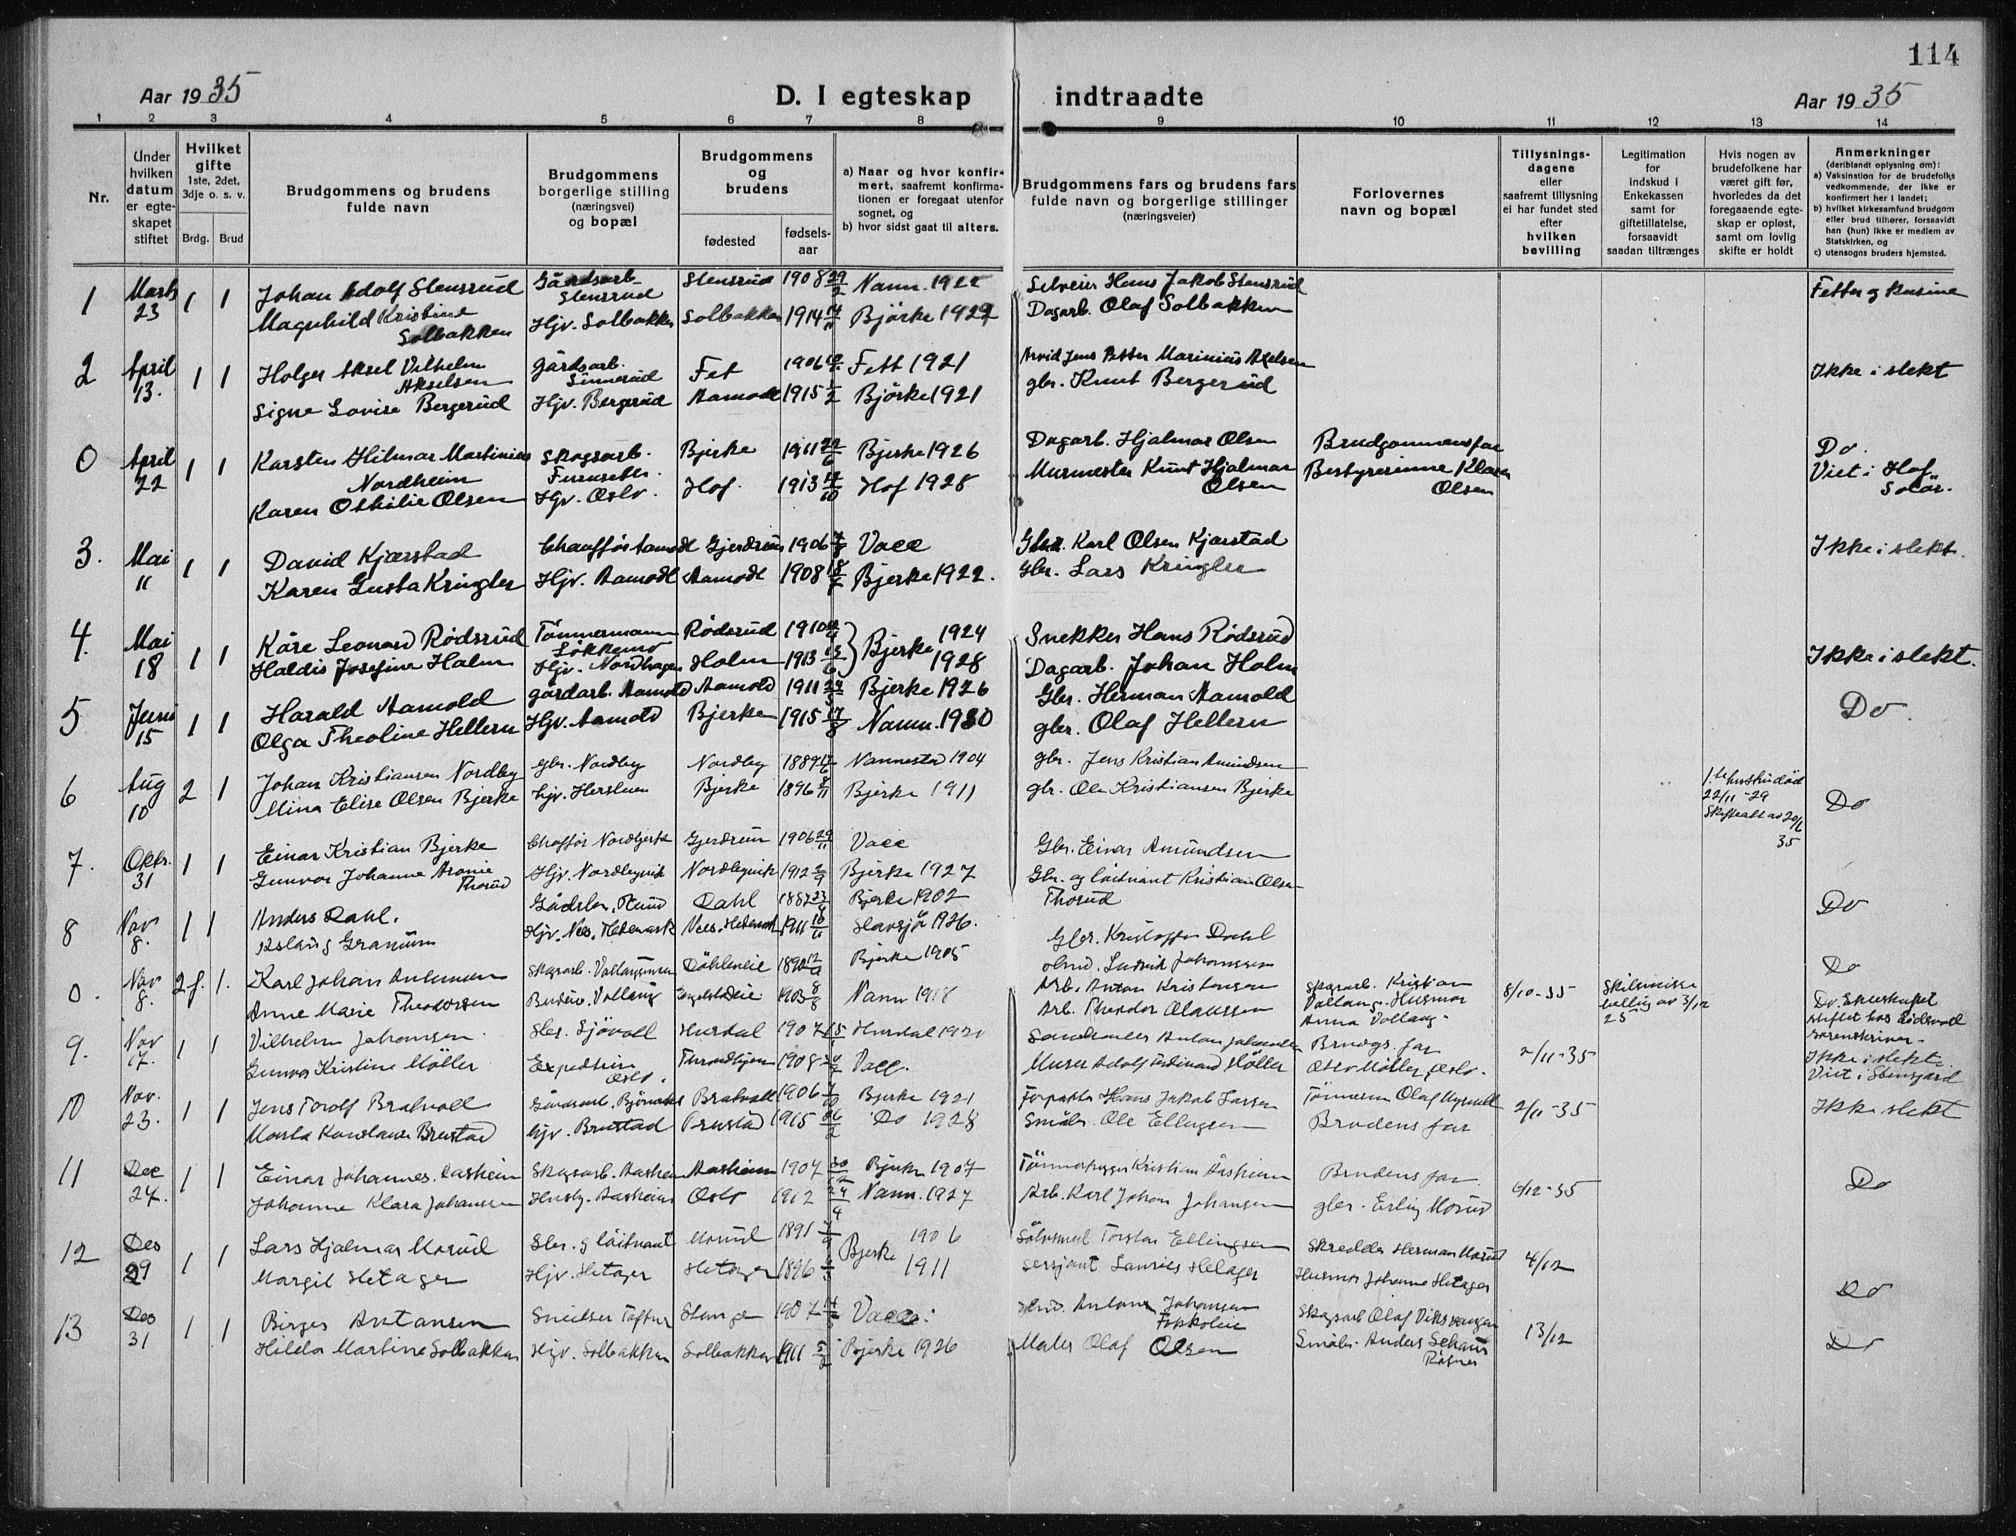 114
Aar 1935
D. I egteskap indtraadte
Aar 1935
1 2 3 4 5 6 7 8 9 10 11 12 13 14
Nr.
Under hvilken datum er egteskapet stiftet
Hvilket gifte 1ste, 2det, 3dje o. s. v.
Brdg. Brud
Brudgommens og brudens fulde navn
Brudgommens borgerlige stilling (næringsvei) og bopæl
Brudgommens og brudens
fødested
fødsels-aar
a) Naar og hvor konfirmert, saafremt konfirmationen er foregaat utenfor sognet, og
b) hvor sidst gaat til alters.
Brudgommens fars og brudens fars fulde navn og borgerlige stillinger (næringsveier)
Forlovernes navn og bopæl
Tillysningsdagene eller saafremt tillysning ei har fundet sted efter hvilken bevilling
Legitimation for indskud i Enkekassen samt for giftetillatelse, forsaavidt saadan tiltrænges
Hvis nogen av brudefolkene har været gift før, hvorledes da det foregaaende egteskap er opløst, samt om lovlig skifte er holdt
Anmerkninger (deriblandt oplysning om):
a) Vaksination for de brudefolks vedkommende, der ikke er konfirmert her i landet;
b) hvilket kirkesamfund brudgom eller brud tilhører, forsaavidt han (hun) ikke er medlem av Statskirken, og
c) utensogns bruders hjemsted.
1 Marts 23 1 1 Johan Adolf Stensrud Gårdsarb. Stensrud Stensrud 1908 29/2 Nann. 1922 Hans Jakob Stensrud Fetter og kusine
Magnhild Kristine Solbakken Hjv. Solbakken Solbakken 1914 Bjørke 1929 Dagarb. Olaf Solbakken
2 April 13. 1 1 Holger Aksel Vilhelm Akselsen Gårdsarb. Sinnerud Fet 1906 Fett 1921 Arvid Jens Petter Marinius Axelsen Ikke i slekt
Signe Lovise Bergerud Hjv. Bergerud Aamodt 1915 1/2 Bjørke 1921 gbr. Knut Bergerud
0 April 22 1 1 Karsten Hilmar Martinius Nordheim Skogsarb. Furuseth. Bjerke 1911 22/6 Bjerke 1926 Dagarb. Hjalmar Olsen Brudgommens far Do.
Karen Othilie Olsen Hjv. Oslo. Hof. 1913 Hof 1928 Murmester Knut Hjalmar Olsen Bestyrerinne Klara Olsen Viet i Hof Solør.
3. Mai 11 1 1 David Kjærstad Chauffør Aamodt Gjerdrum 1906 Vacc Gbr. Karl Olsen Kjærstad Ikke i slekt.
Karen Gusta Kringler Hjv. Aamodt Aamodt 1908 Bjerke 1922. Gbr. Lars Kringler
4. Mai 18 1 1 Kåre Leonard Rødsrud Tømmermann Løkkemo Rødsrud 1910 Bjerke 1924 Snekker Hans Rødsrud Ikke i slekt.
Haldis Josefine Holm Hjv. Nordhagen Holm 1913 13/6 1928 Dagarb. Johan Holm
5 Juni 15 1 1 Harald Aamold gårdarb. Aamold Aamold 1911 Bjerke 1926 Gbr. Herman Aamold Do.
Olga Theoline Hellern Hjv. Aamold Bjerke 1915 17/8 Nann. 1930 gbr. Olaf Hellern
6 Aug 10 2 1 Johan Kristiansen Nordby Gbr. Nordby Nordby 1889 Nannestad 1904 gbr. Jens Kristian Amundsen 1.ste hustru død 22/11-29 Skifteatt av 20/6 35 Do
Mina Elise Olsen Bjerke hjv. Herstuen Bjerke 1896 8/11 Bjerke 1911 gbr. Ole Kristiansen Bjerke
7. Oktr. 31 1 1 Einar Kristian Bjerke Chaffør Nordbyvik Gjerdrum 1906 29/11 Vacc Gbr. Einar Amundsen
Gunvor Johanne Aronie Thorud Hjv. Nordbyvik Nordbyvik 1912 2/9 Bjerke 1927 Gbr. og løitnant Kristian Olsen Thorud Do
8 Nov 8. 1 1 Anders Dahl. Dahl 1887 Bjerke 1902 Gbr. Kristoffer Dahl
Aslaug Granum Hjv. Nes, Hedemark Nes. Hedemark 1911 10/11 Stavsjø 1926. Ludvik Johannessen Do
0. Nov 8. 2 f. 1. Karl Johan Antonsen Skogsarb. Vollaugmoen Døhleneie 1890 12/9 Bjerke 1905 Arb. Anton Kristensen Skogsarb. Kristian Vollaug. 8/10-35 Skilsmisse bevillig av 3/12 25 Do.
Anne Marie Theodorsen Budeie. Vollaug 1903 8/8 Nann 1918 Arb. Theodor Olaussen Husmor Anna Vollaug.
9. Nov 17. 1 1 Vilhelm Johansen Gbr. Sjøvoll Hurdal 1907 Hurdal 1921 Anton Johansen Brudgs. far 2/11-35 Ikke i slekt.
Gunvor Kristine Møller Expeditrise Oslo. Throndhjem 1908 Vacc. Murer Adolf Ferdinand Møller Møller, Oslo. Viet i Stensgård
10 Nov. 23. 1 1 Jens Torolf Bratvoll Bratvoll 1906 Bjerke 1921 Forpakter Hans Jakob Larsen Tømrerm Olaf Nysveen 2/11-35 Ikke slekt
Brustad Hjv. Brustad Brustad 1915 26/2 Do 1928 Småbr. Ole Ellingsen Brudens far
11 Dec 27. 1 1 Einar Johannes Aasheim Skogsarb. Aasheim Aasheim 1907 30/12 Bjerke 1907 Tømmerhugger Kristian Åsheim Brudens far. 6/12-35 Do
Johanne Klara Johansen Husby. Aasheim Oslo 1912 24/4 Nann. 1927 Arb. Karl Johan Johansen gbr. Erling Morud
12 Des 29 1 1 Lars Hjalmar Morud Gbr. og løitnant Morud 1891 7/9 Bjerke 1906 Torstein Ellingsen Skredder Herman Morud 4/12 Do
Margit Hetager Hjv. Hetager Hetager 1896 1911 Sersjant Laurits Hetager Husmor Johanne Hetager
13 Des 31 1 1 Birger Antonsen Smelser Toftner Stange 1907 Vacc. Anton Johansen Skogsarb Olaf 13/12 Do
Hilda Martine Solbakken Hjv. Solbakken Solbakken 1911 5/2 Bjerke 1926 Maler Olaf Olsen Småbr. Anders